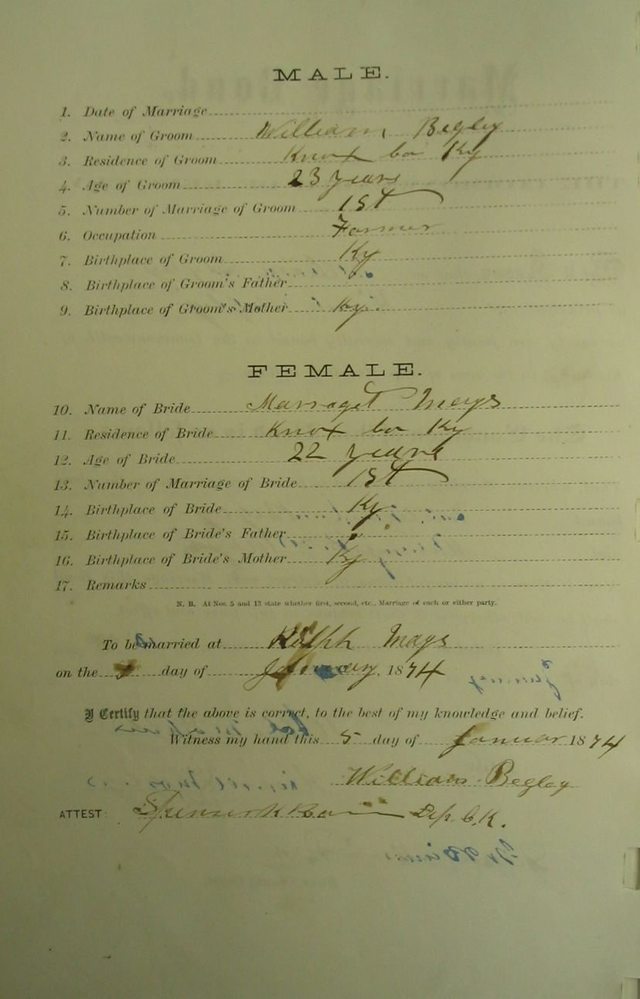 MALE.
1. Date of Marriage
2. Name of Groom William Begley
3. Residence of Groom Knox Co Ky
4. Age of Groom 23 years
5. Number of Marriage of Groom 1st
6. Occupation Farmer
7. Birthplace of Groom Ky
8. Birthplace of Groom's Father
9. Birthplace of Groom's Mother Ky.
FEMALE.
10. Name of Bride Marraget Mays
11. Residence of Bride Knox Co Ky
12. Age of Bride 22 years
13. Number of Marriage of Bride 1st
14. Birthplace of Bride Ky
15. Birthplace of Bride's Father
16. Birthplace of Bride's Mother Ky
17. Remarks
N. B. At Nos. 5 and 13 state whether first, second, etc., Marriage of each or either party.
To be married at Ralph Mays
on the day of January, 1874
I Certify that the above is correct, to the best of my knowledge and belief.
Witness my hand this 5 day of Januar 1874
William Begley
ATTEST: Dep. C. K.